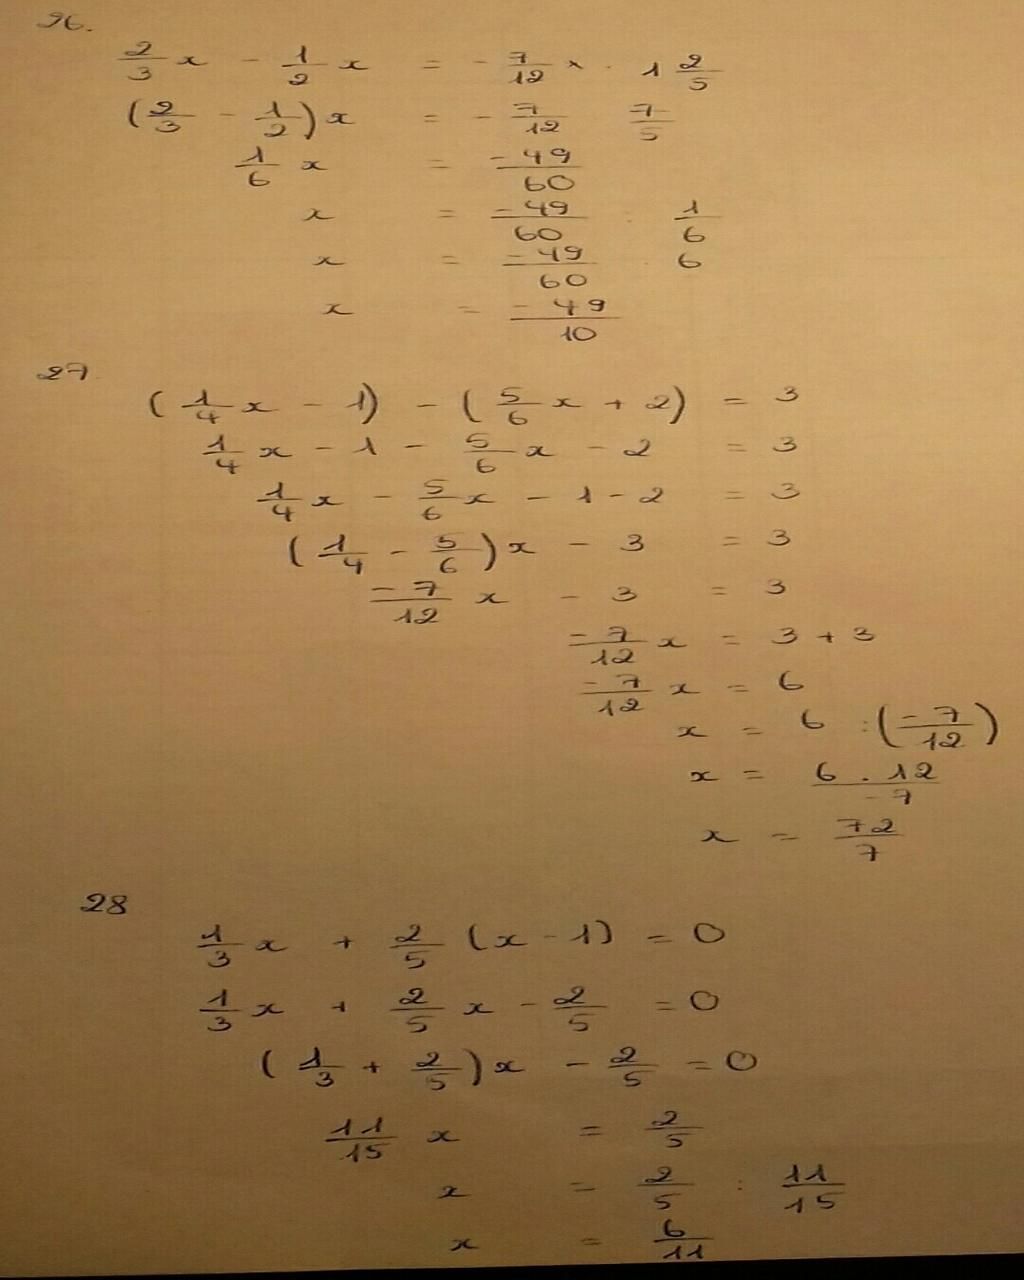 26.
2/3 x - 1/2 x = - 7/12 x · 1 2/5
(2/3 - 1/2) x = - 7/12 7/5
1/6 x = -49/60
x = -49/60 : 1/6
x = -49/60 · 6
x = -49/10
27
(1/4 x - 1) - (5/6 x + 2) = 3
1/4 x - 1 - 5/6 x - 2 = 3
1/4 x - 5/6 x - 1 - 2 = 3
(1/4 - 5/6) x - 3 = 3
-7/12 x - 3 = 3
-7/12 x = 3 + 3
-7/12 x = 6
x = 6 : (-7/12)
x = 6 . 12/-7
x = 72/7
28
1/3 x + 2/5 (x - 1) = 0
1/3 x + 2/5 x - 2/5 = 0
(1/3 + 2/5) x - 2/5 = 0
11/15 x = 2/5
x = 2/5 : 11/15
x = 6/11